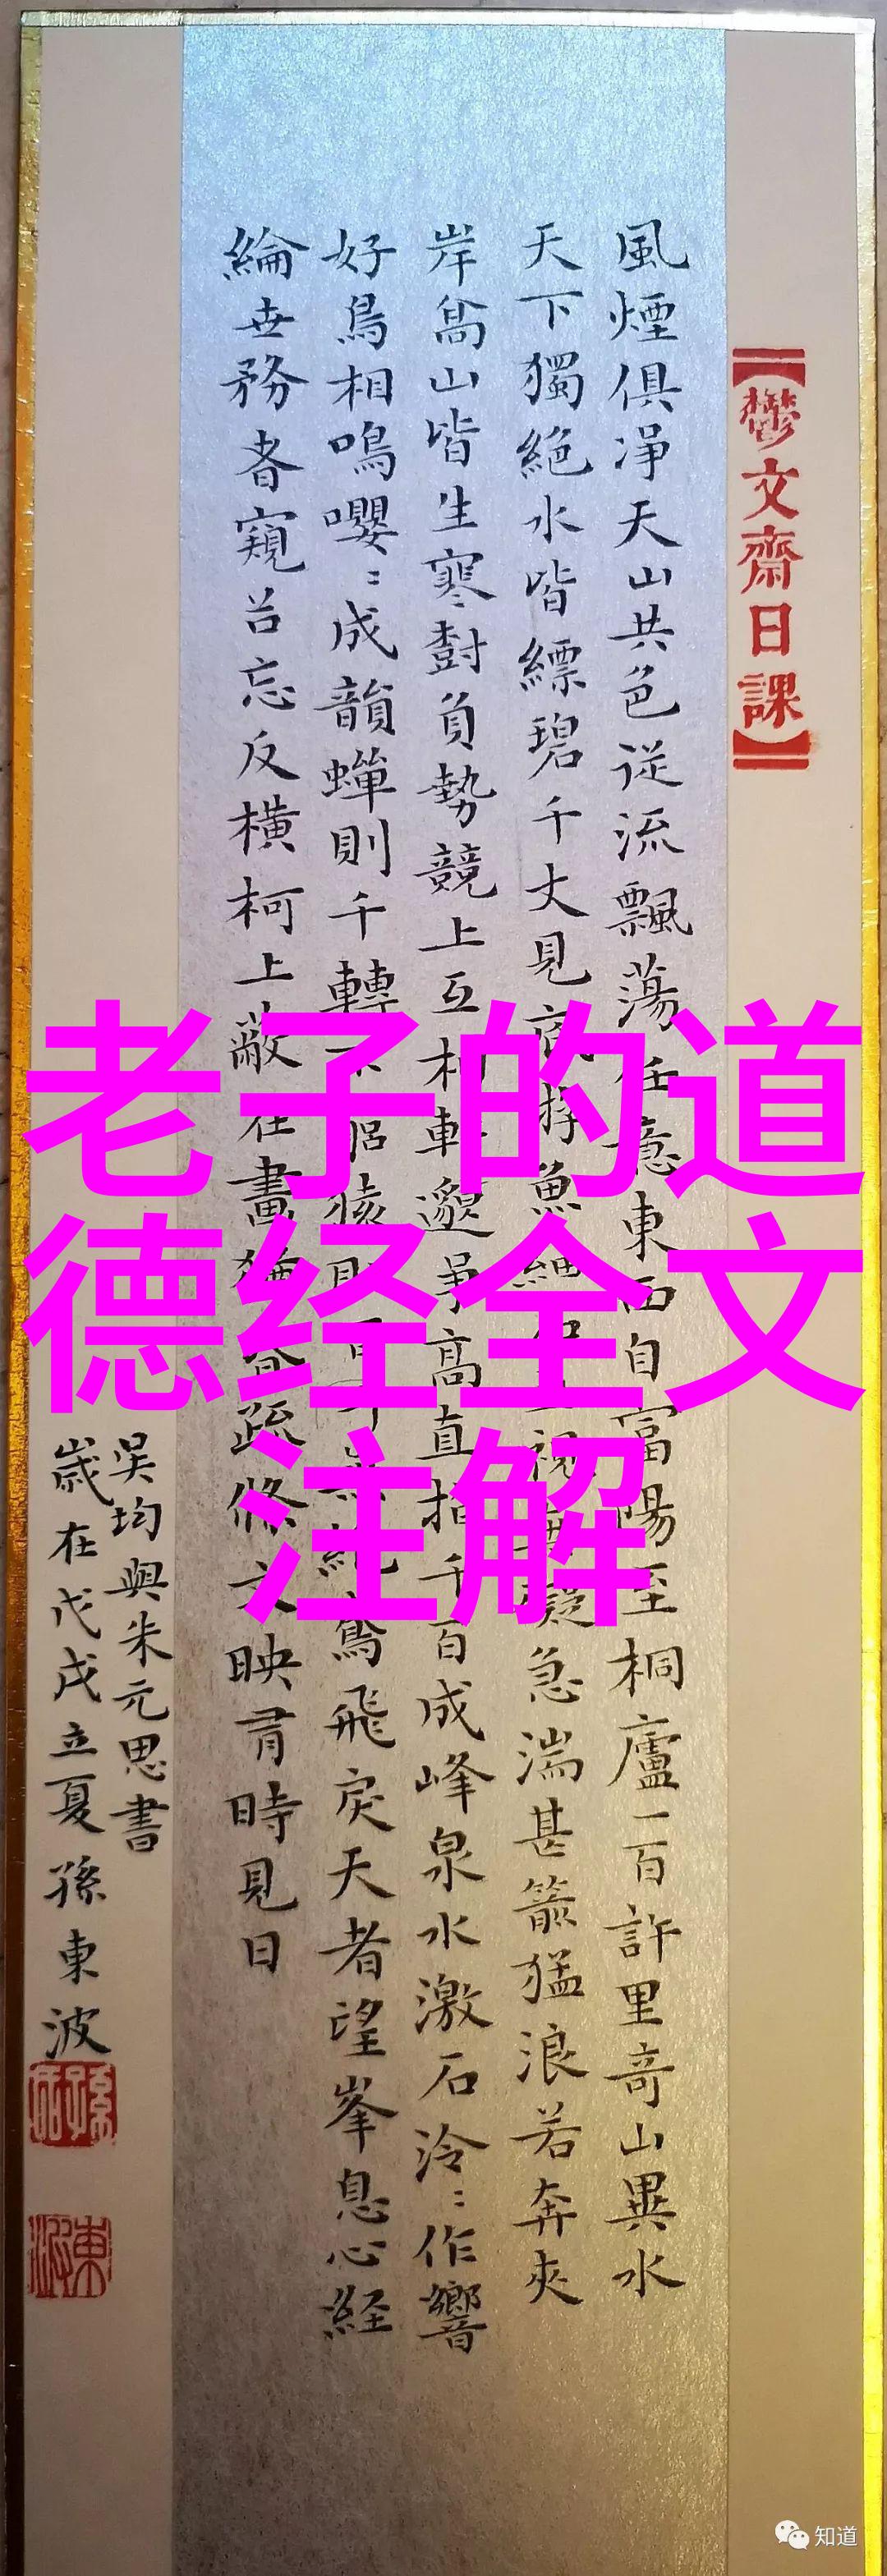 【鬱文齋日課】
風煙俱淨天山共色從流飄蕩任意東西自富陽至桐廬一百許里奇山異水
天下獨絕水皆縹碧千丈見底游魚細石直視無礙急湍甚箭猛浪若奔夾
岸高山皆生寒樹負勢競上互相軒邈爭高直指千百成峰泉水激石泠〻作響
好鳥相鳴嚶〻成韻蟬則千轉不窮猿則百叫無絕鳶飛戾天者望峯息心経
綸世務者窺谷忘反橫柯上蔽在晝猶昏疏條交映有時見日
吳均與朱元思書
歲在戊戌立夏孫東波
老子的道
德经全文
注解
知道